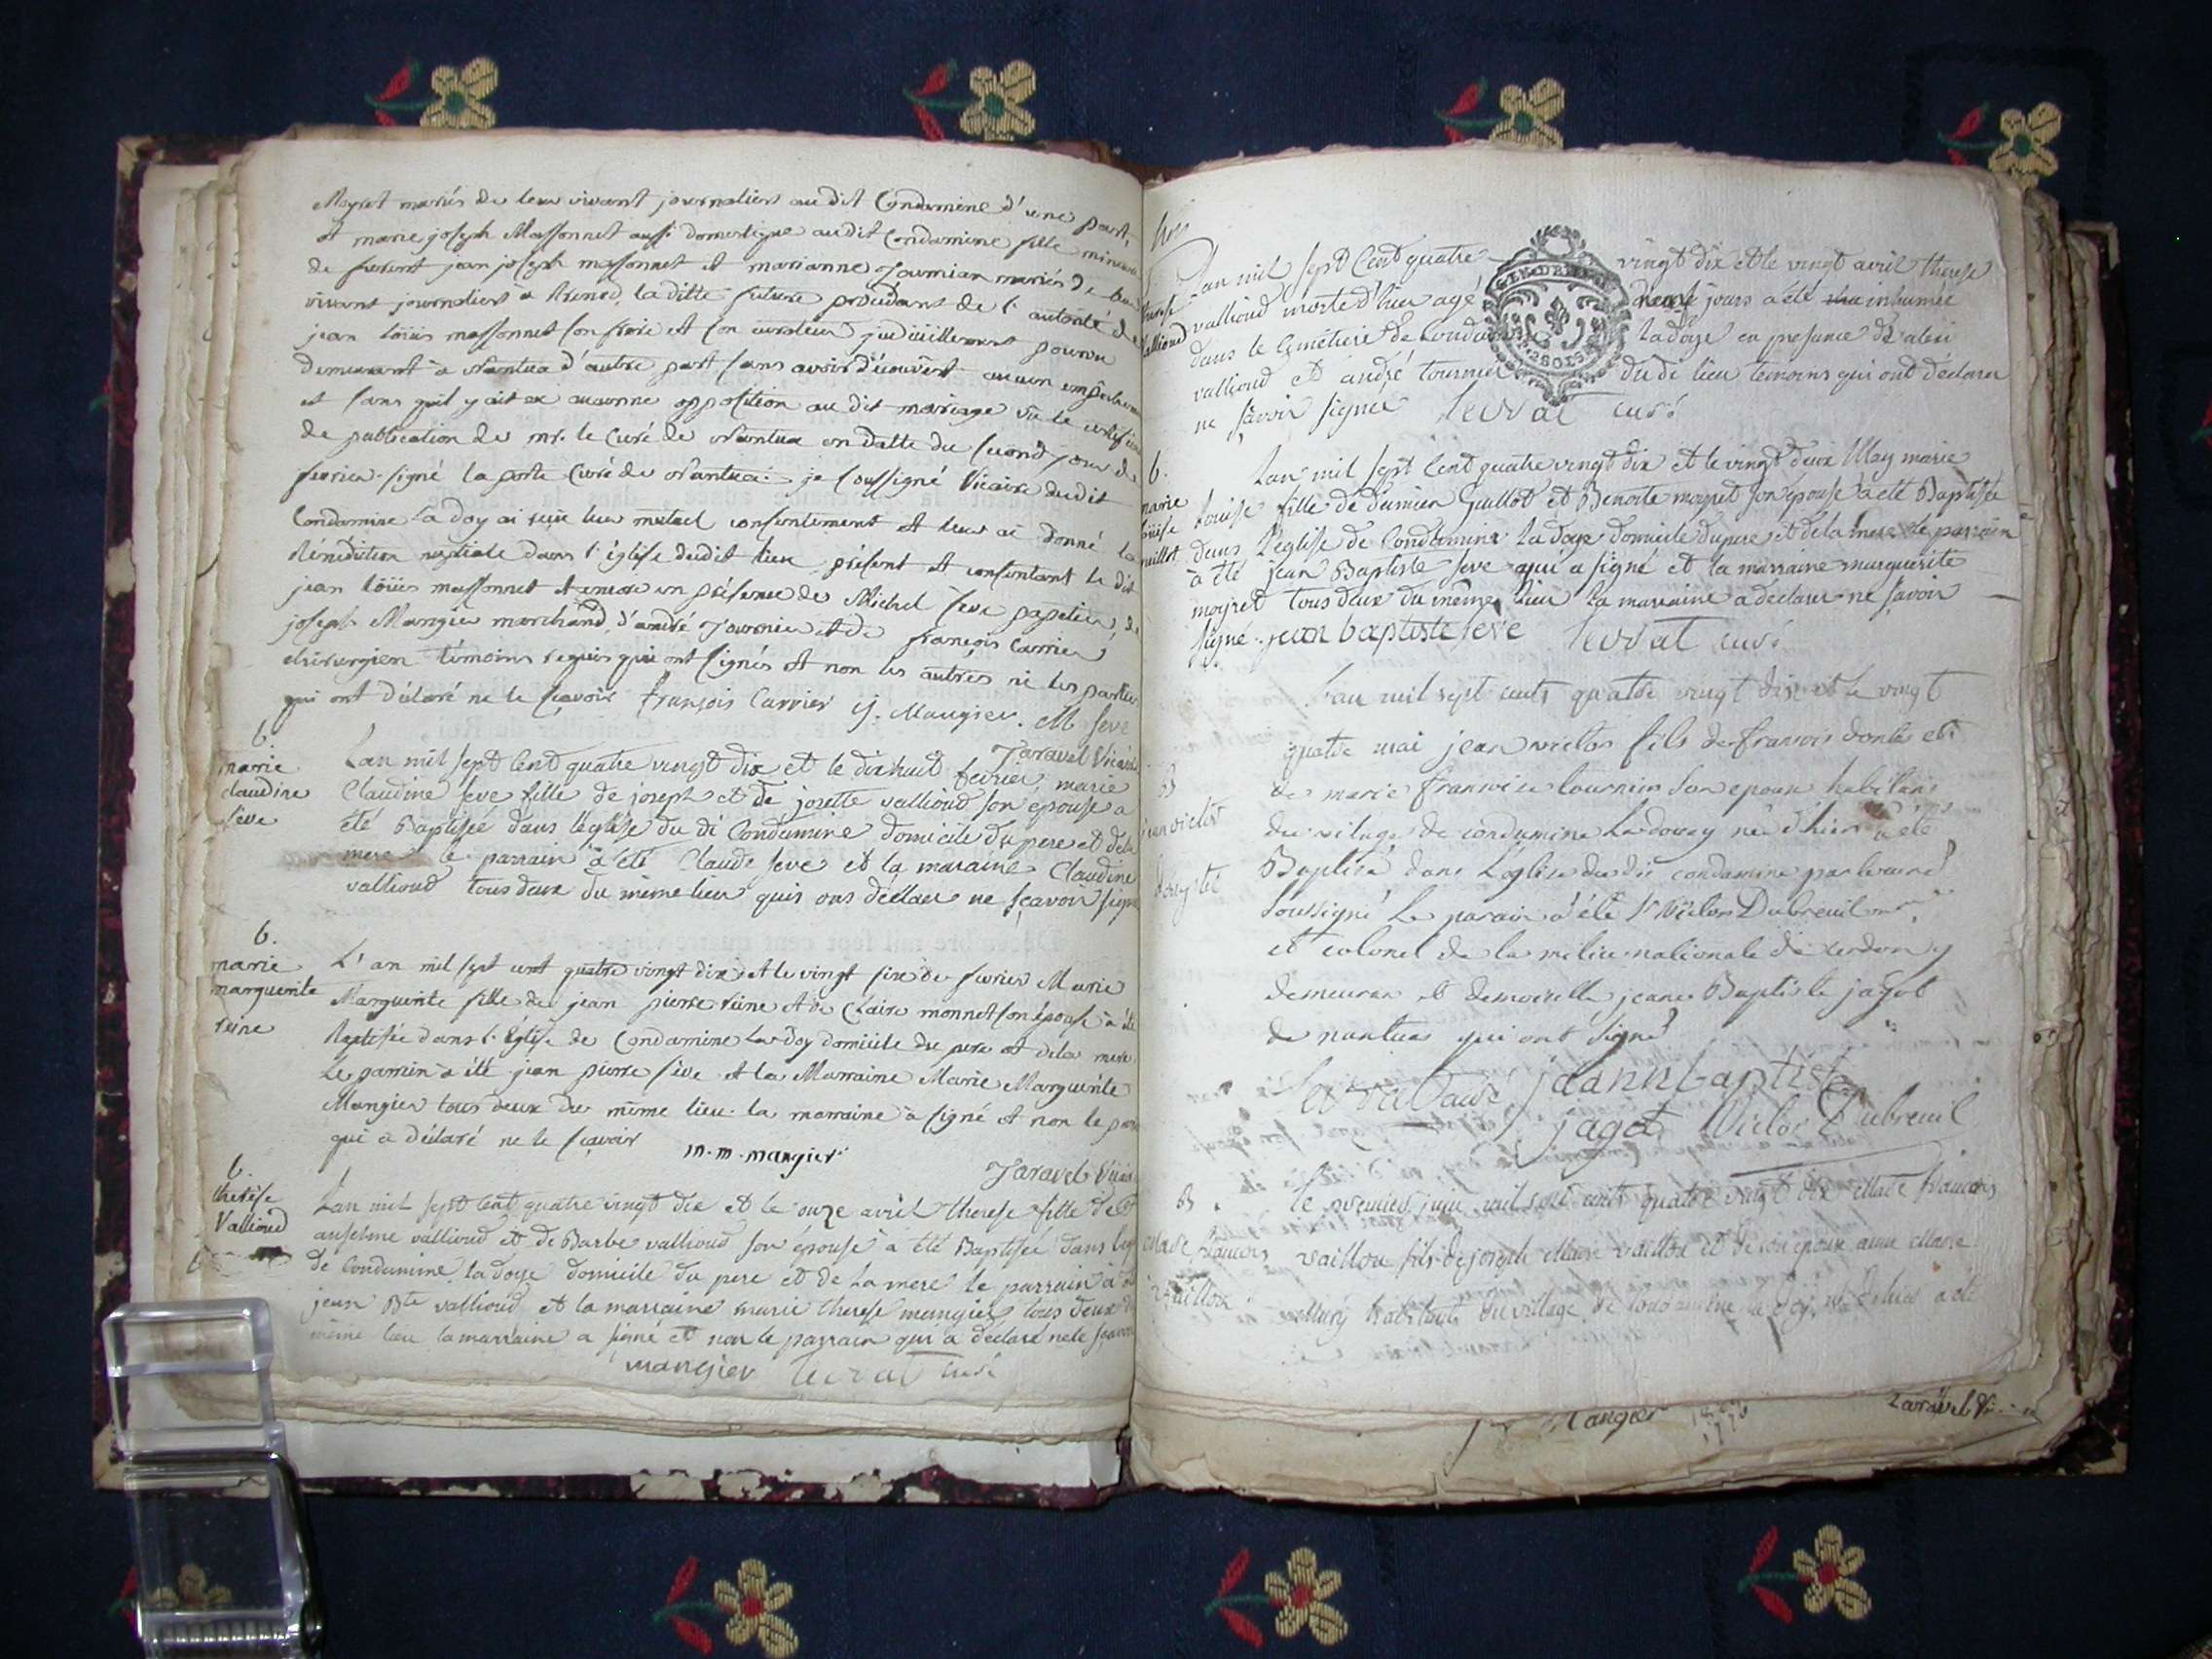 Moyret mariés de leur vivant journaliers audit Condamine d'une part,
et marie joseph Massonnet aussi domestique audit Condamine fille mineure
de jean joseph massonnet et marianne mariés de leur
vivant journaliers à la ditte future procédant de l'autorité de
jean loüis massonnet son frere et son curateur pourvu
demeurant à Nantua d'autre part sans avoir découvert aucun
et sans quil y ait eu aucunne opposition au dit mariage vu le
de publication de mr. le Curé de Nantua en datte du second jour de
fevrier. signé la porte Curé de Nantua. je soussigné Vicaire dudit
Condamine la doy ai reçu leur mutuel consentement et leur ai donné la
Bénédiction nuptiale dans l'église dudit lieu, présent et consentant le dit
jean loüis massonnet et encore en présence de Michel seve papetier de
joseph Mangier marchand, d'andré Tournier et de françois Carrier
chirurgien témoins requis qui ont signés et non les autres ni les parties
qui ont déclaré ne le sçavoir françois Carrier j. Mangier. M Seve
Jaravel Vicaire
b.
marie
claudine
seve
Lan mil sept Cent quatre vingt dix et le dix huit fevrier, marie
Claudine seve fille de joseph et de josette vallioud son épouse a
été Baptisée dans léglise du di Condamine domicile du pere et de la
mere le parrain a été Claude seve et la maraine Claudine
vallioud tous deux du même lieu quis ons déclaré ne sçavoir signé
b.
marie
marguerite
reine
L'an mil sept cent quatre vingt dix et le vingt six de fevrier Marie
Marguerite fille de jean pierre reine et de Claire monnet son épouse à été
Baptisée dans l'église de Condamine La doy domicile du pere et de la mere
Le parrain à été jean pierre sève et la Marraine Marie Marguerite
Mangier tous deux du même lieu. la marraine à signé et non le
qui a déclaré ne le sçavoir m. m. mangier
Jaravel Vicaire
b.
therèse
Vallioud
Lan mil sept Cent quatre vingt dix et le onze avril therese fille de
anselme vallioud et de Barbe vallioud son épouse à été Baptisée dans
de Condamine la doye domicile du pere et de la mere le parrain à
jean Bte vallioud et la marraine marie therese mangier, tous deux du
même lieu la marraine a signé et non le parrain qui a déclaré ne le sçavoir
mangier levrat curé
Lan mil sept Cent quatre vingt dix et le vingt avril therese
vallioud morte d'hier agé neuf jours a été inhumée
dans le Cémétiere de Condamine la doye en presence
vallioud et andré tournier du di lieu temoins qui ont déclaré
ne sçavoir signer levrat curé
GEN. DE
2 SOLS
therese
vallioud
b.
marie
loüise
guillot
Lan mil sept Cent quatre vingt dix et le vingt deux May marie
louise fille de damien Guillot et Benoite moyret son épouse à été Baptisée
dans l'eglise de Condamine la doye domicile du pere et de la mere le parrain
à été jean Baptiste seve qui a signé et la marraine marguerite
moyret tous deux du même lieu la marraine a déclaré ne sçavoir
signé. jean baptiste seve levrat curé
B
jean victor
L'an mil sept cents quatre vingt dix et le vingt
quatre mai jean victor fils de francois et
de marie francoise tournier son epouse habitans
du vilage de condamine La doy né d'hier à été
Baptisé dans L'église du dit condamine par le curé
Soussigné Le parain à été Sr Victor Dubreuil
et colonel de la milice nationale de cerdon y
demeurant et demoiselle jeane Baptiste jagot
de nantua qui ont signé
levrat curé jeanne baptiste
jagot Victor Dubreuil
B.
Marie françois
vaillou
le premier juin mil sept cent quatre vingt dix Marie françois
vaillou fils de joseph Marie vaillou et de son épouse anne Marie
habitants du village de condamine la doy, né d'hier a été
Mangier
Jaravel